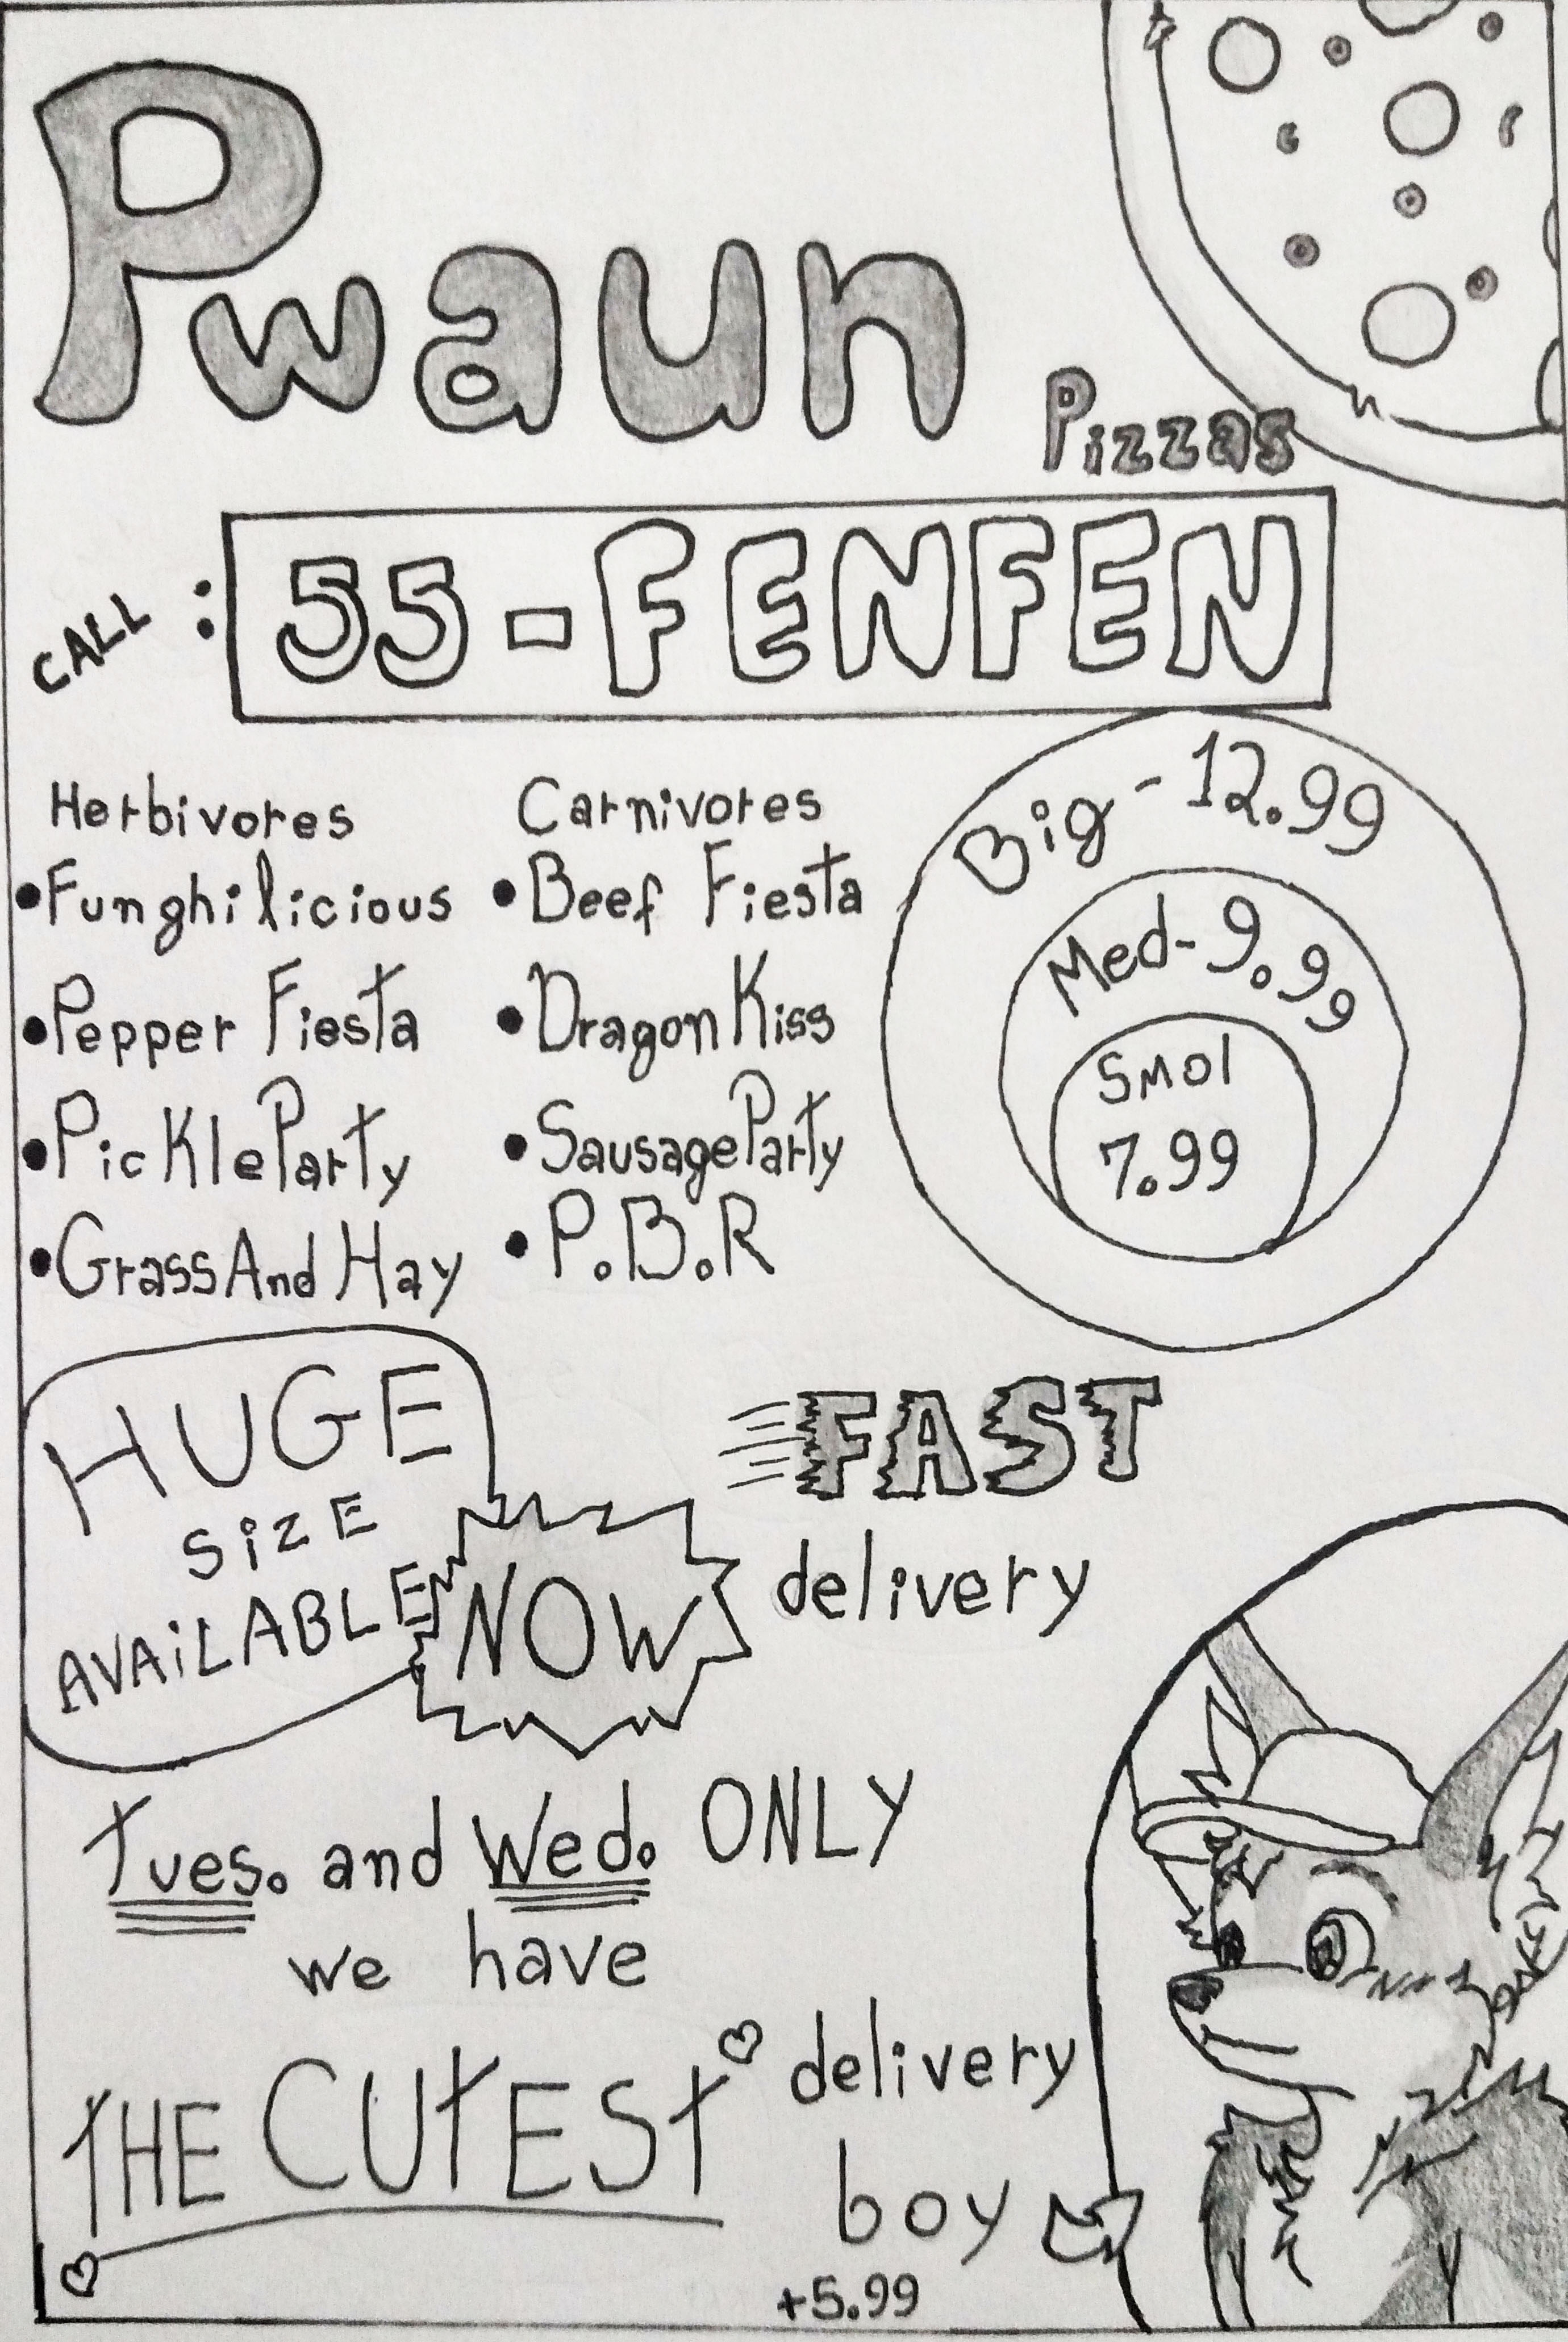 Pwaun
Pizzas
CALL : 55-FENFEN
Herbivores
•Funghilicious
•Pepper Fiesta
•Pickle Party
•Grass And Hay
Carnivores
•Beef Fiesta
•Dragon Kiss
•Sausage Party
•P.B.R
Big-12.99
Med-9.99
Smol
7.99
HUGE
SiZE
AVAiLABLE
NOW
FAST
delivery
Tues. and Wed. ONLY
we have
THE CUTEST♡ delivery
boy
+5.99